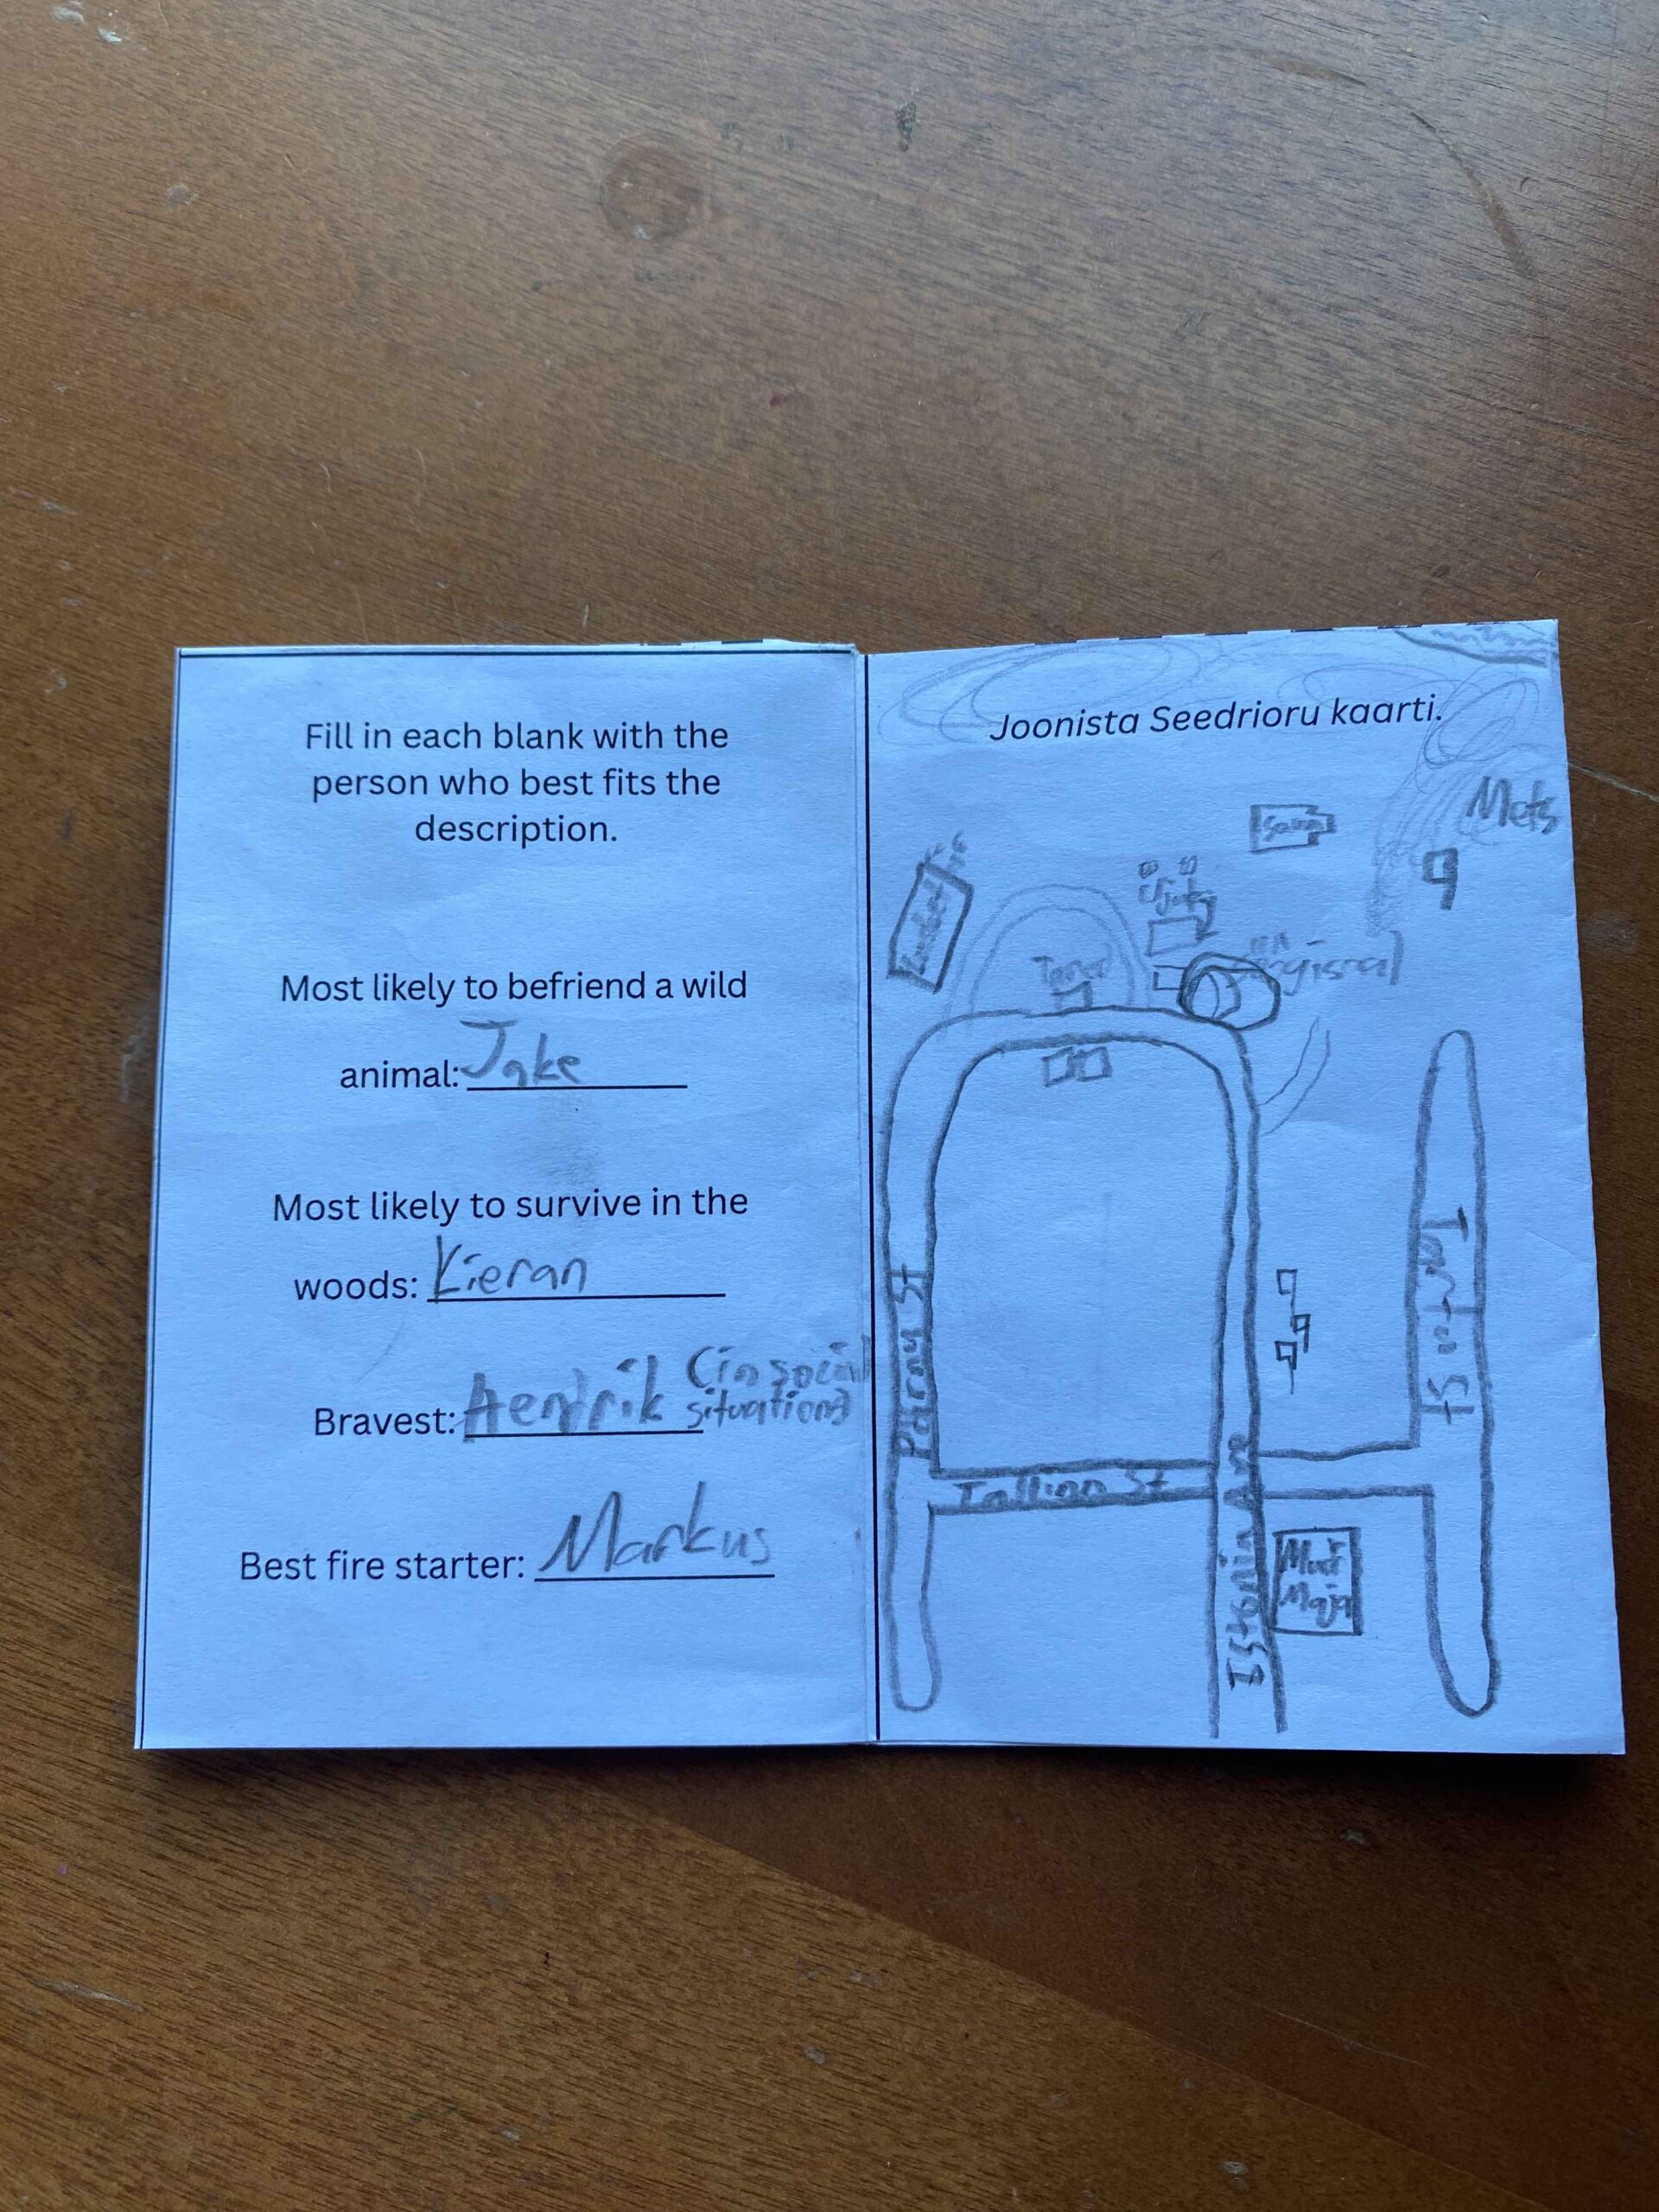 Fill in each blank with the
person who best fits the
description.
Most likely to befriend a wild
animal: Jake
Most likely to survive in the
woods: Kieran
Bravest: Hendrik (in social
situations)
Best fire starter: Markus
Joonista Seedrioru kaarti.
Mets
Pärnu St
Tallinn St
Estonia Ave
Tartu St
Maja